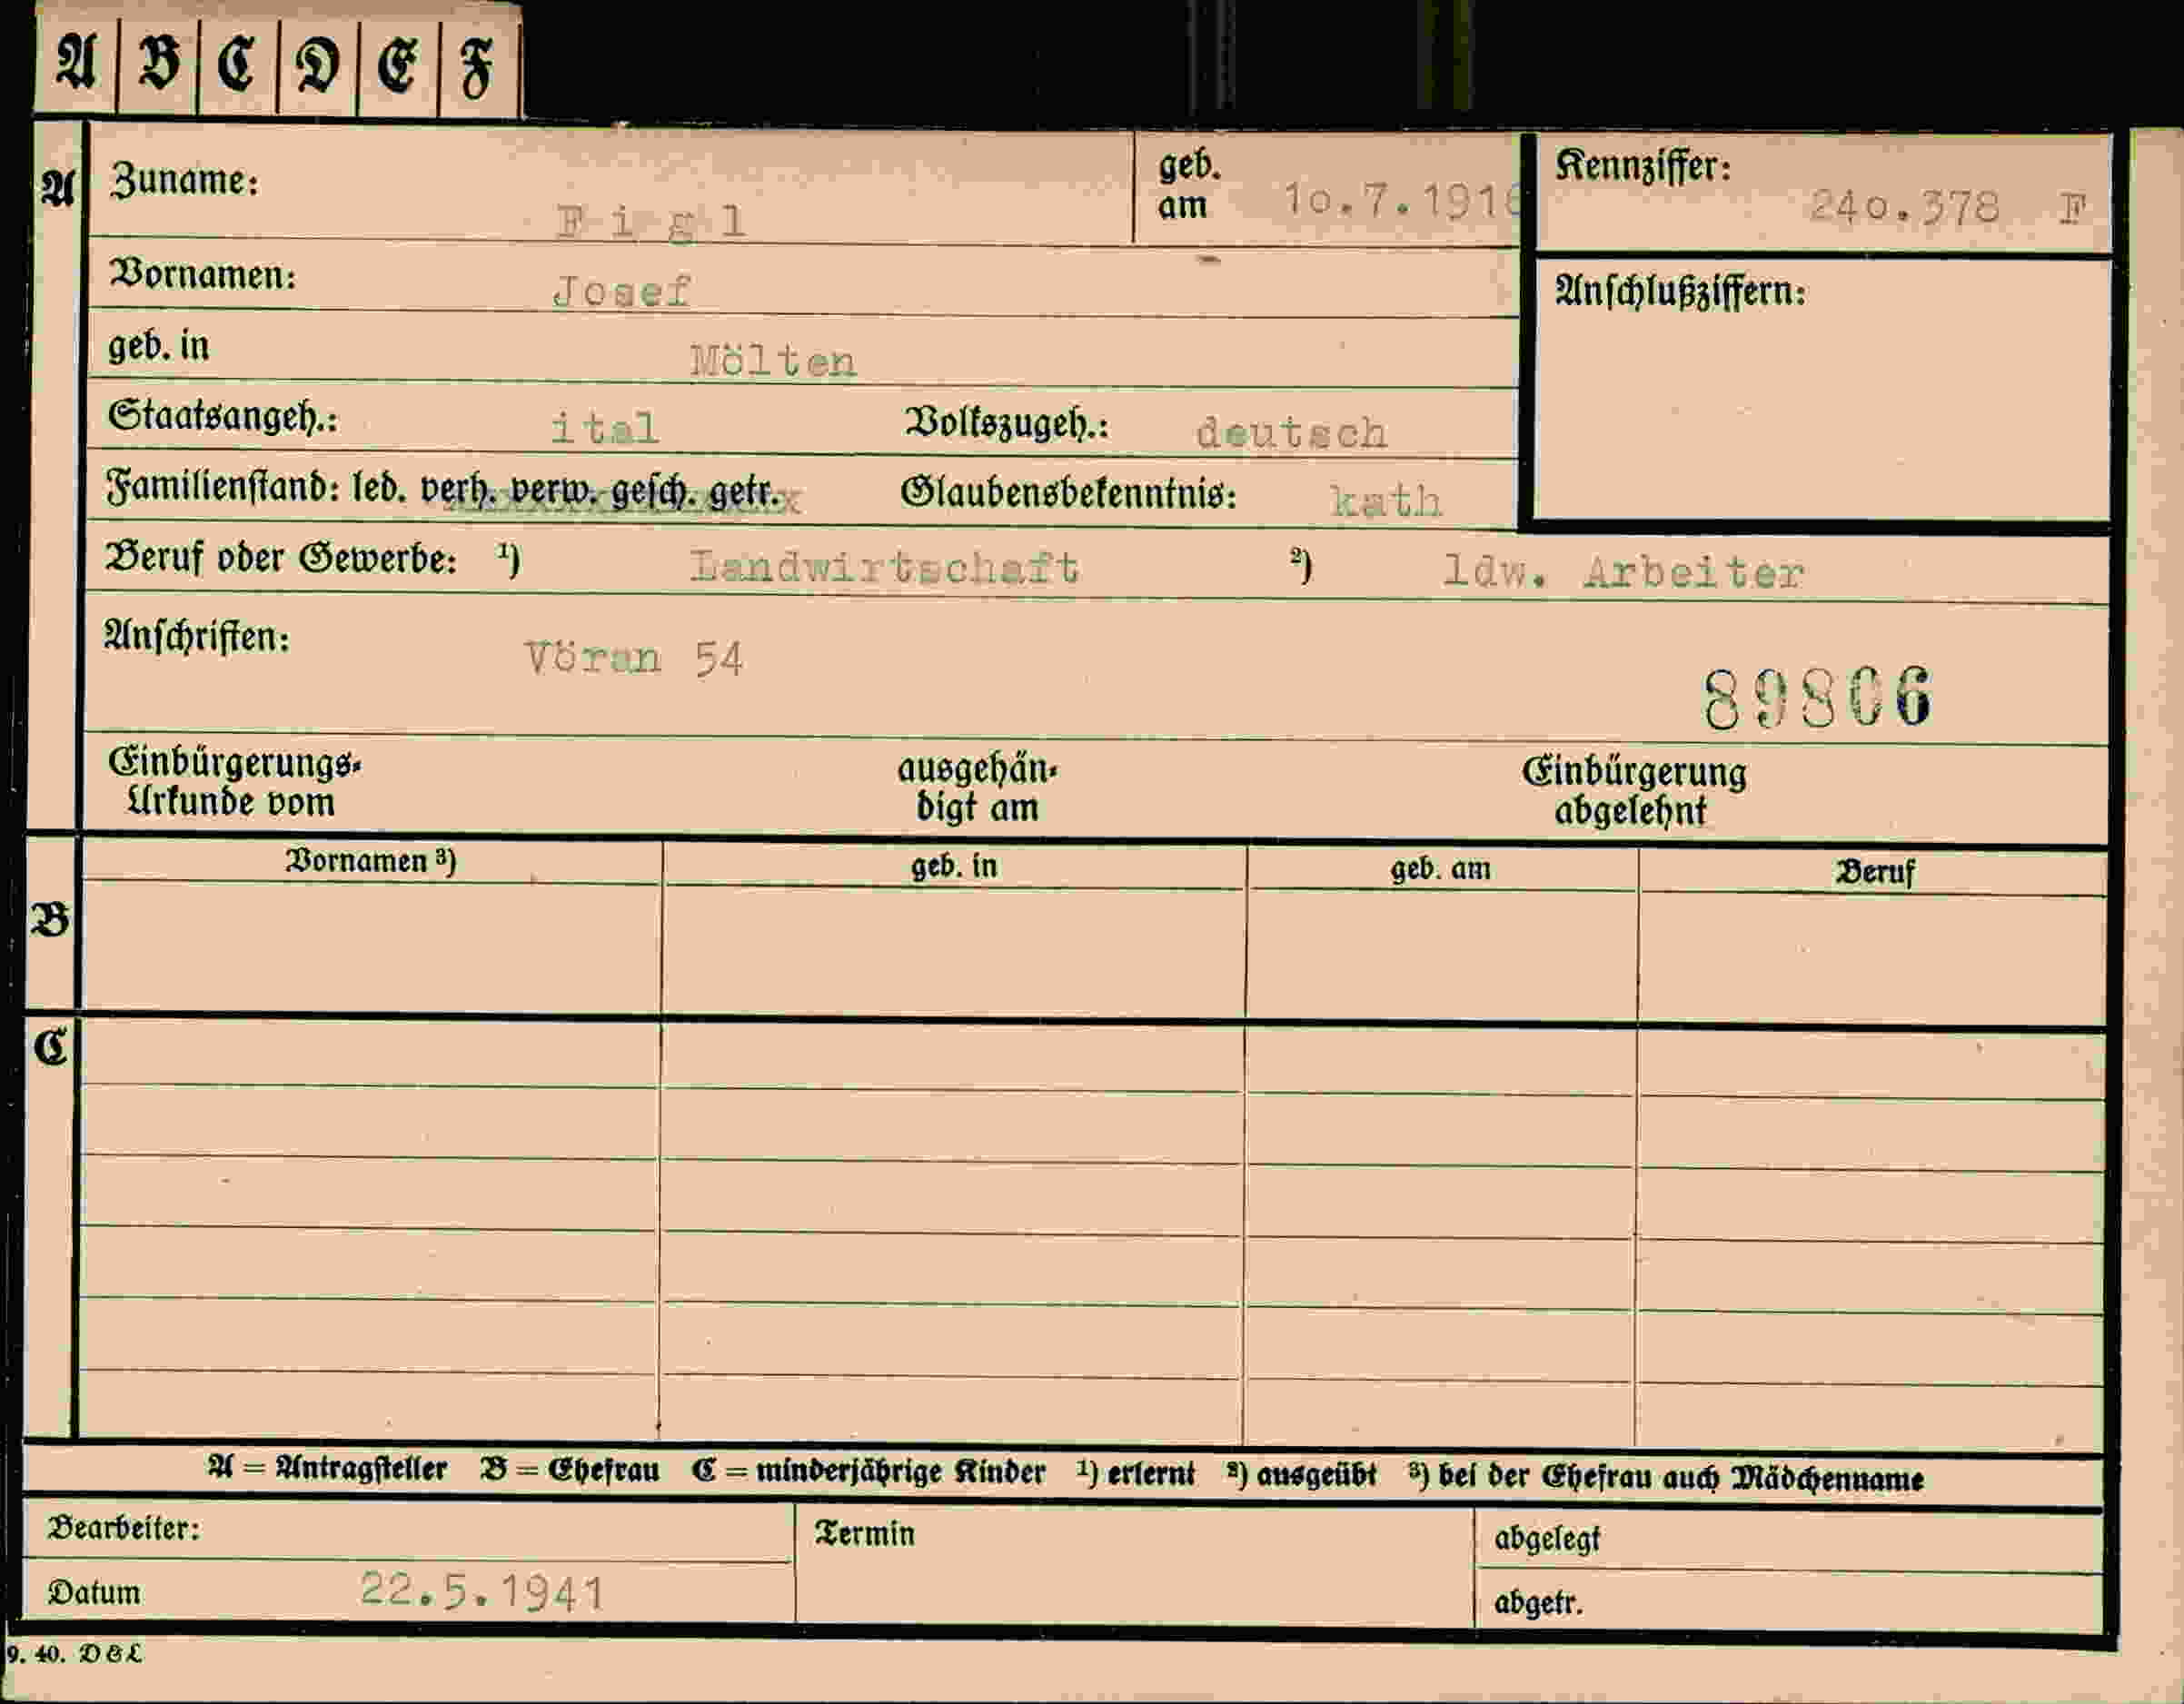 A B C D E F
A Zuname: Figl geb. am 10.7.1916 Kennziffer: 240.378 F
Vornamen: Josef Anschlußziffern:
geb. in Mölten
Staatsangeh.: ital Volkszugeh.: deutsch
Familienstand: led. verh. verw. gesch. getr. Glaubensbekenntnis: kath
Beruf oder Gewerbe: ¹) Landwirtschaft ²) ldw. Arbeiter
Anschriften: Vöran 54
89806
Einbürgerungs- ausgehän- Einbürgerung
Urkunde vom digt am abgelehnt
Vornamen ³) geb. in geb. am Beruf
B
C
A = Antragsteller B = Ehefrau C = minderjährige Kinder ¹) erlernt ²) ausgeübt ³) bei der Ehefrau auch Mädchenname
Bearbeiter: Termin abgelegt
Datum 22.5.1941 abgetr.
9. 40. D & L